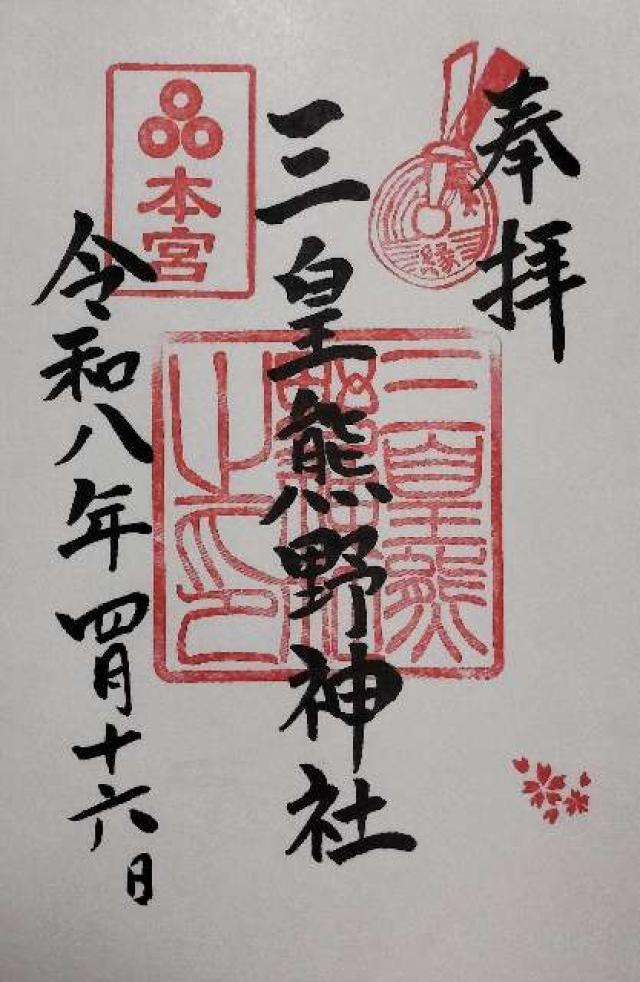 奉拝
縁
三皇熊野神社
三皇熊
野神社
之印
本宮
令和八年四月十六日